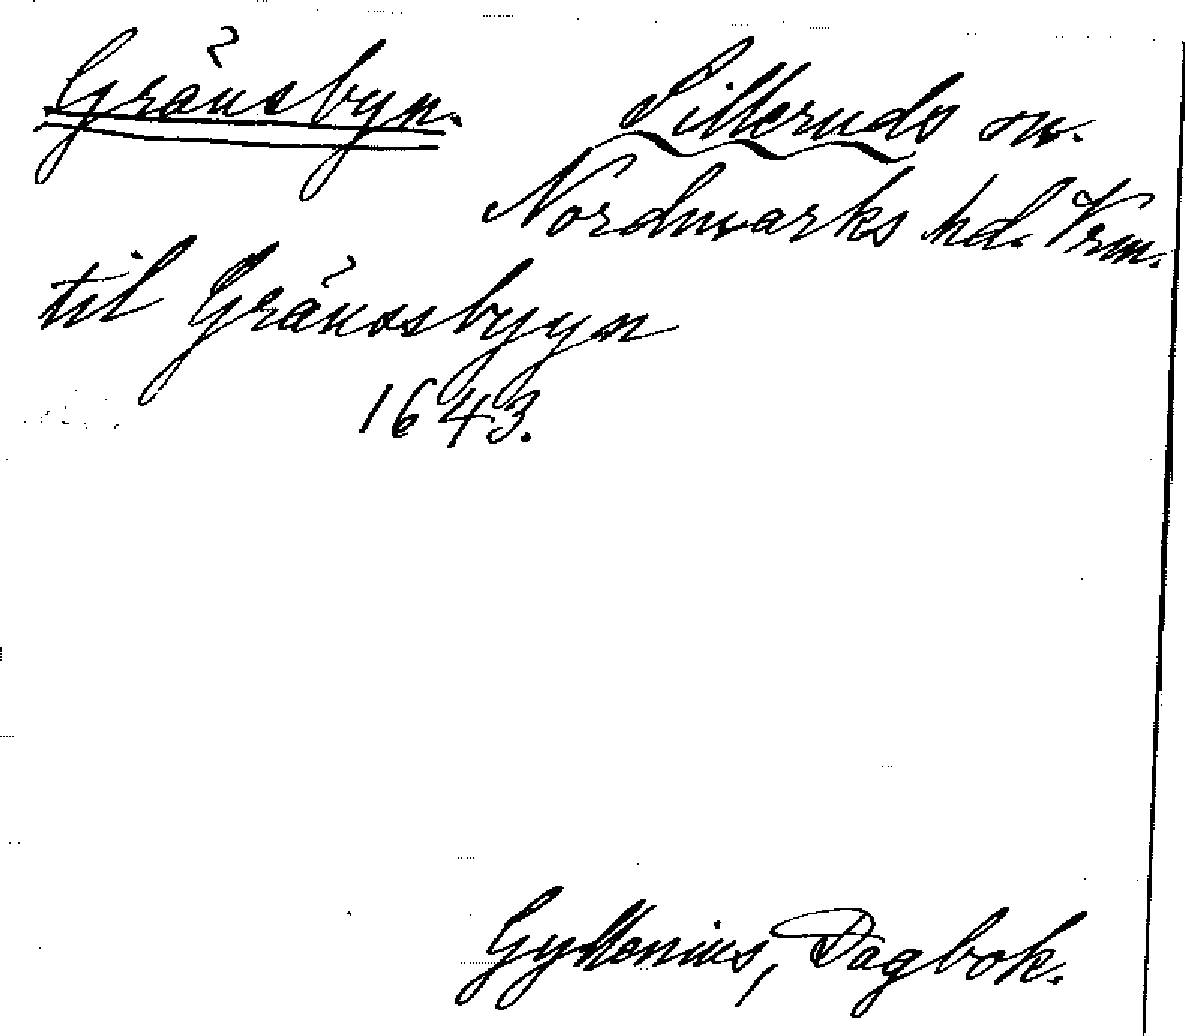 Gränsbyn. Silleruds sn.
Nordmarks hd. Vrm.
til Gränssbyyn
1643.
Gyllenius, Dagbok.